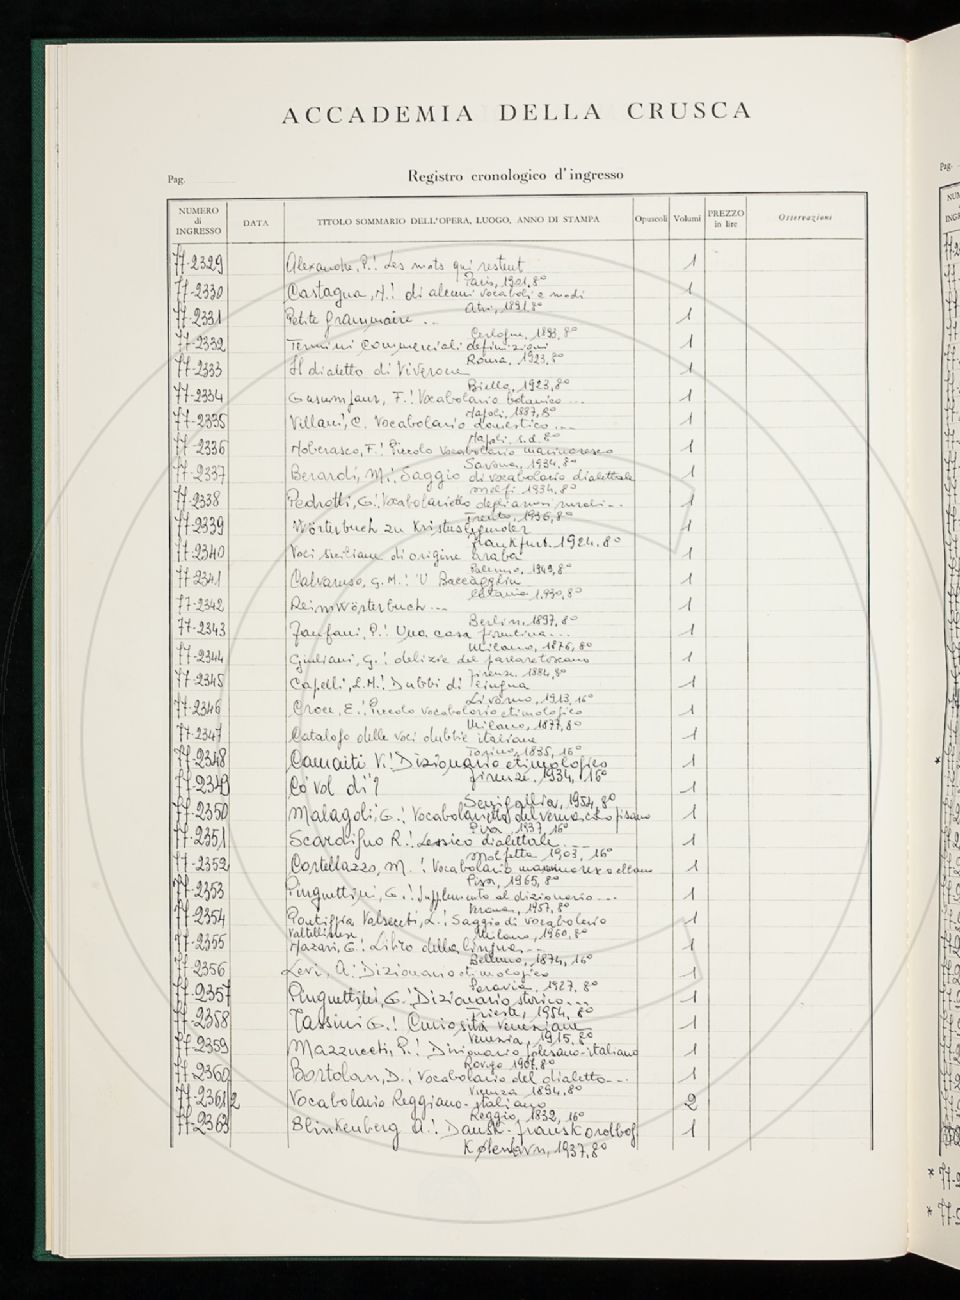 ACCADEMIA DELLA CRUSCA
Pag.
Registro cronologico d'ingresso
NUMERO di INGRESSO DATA TITOLO SOMMARIO DELL'OPERA, LUOGO, ANNO DI STAMPA Opuscoli Volumi PREZZO in lire Osservazioni
77-2329 Alexandre, P.: Les mots qui restent 1
Paris, 1901, 8°
77-2330 Castagna, N.: di alcuni vocaboli e modi 1
Atri, 1891, 8°
77-2331 Petite grammaire ... 1
1893, 8°
77-2332 Termini commerciali definizioni 1
Roma, 1923, 8°
77-2333 Il dialetto di Viverone 1
Biella, 1923, 8°
77-2334 F.: Vocabolario botanico ... 1
Napoli, 1887, 8°
77-2335 Villani, C. Vocabolario domestico ... 1
Napoli, s.d. 8°
77-2336 Noberasco, F.: Piccolo vocabolario marinaresco 1
Savona, 1934, 8°
77-2337 Berardi, M.: Saggio di vocabolario dialettale 1
Melfi 1934, 8°
77-2338 Pedrotti, G.: Vocabolarietto degli arnesi rurali ... 1
Trento, 1936, 8°
77-2339 Wörterbuch zu 1
Frankfurt. 1924. 8°
77-2340 Voci siciliane di origine araba 1
Palermo, 1949, 8°
77-2341 Calvaruso, G. M.: 'U Baccàgghiu 1
Catania, 1930, 8°
77-2342 Reimwörterbuch ... 1
Berlin, 1897, 8°
77-2343 Fanfani, P.: Una casa fiorentina ... 1
Milano, 1876, 8°
77-2344 Giuliani, G.: delizie del parlare toscano 1
Firenze, 1884, 8°
77-2345 Capelli, L. M.: Dubbi di lingua 1
Livorno, 1913, 16°
77-2346 Croce, E.: Piccolo vocabolario etimologico 1
Milano, 1877, 8°
77-2347 Catalogo delle voci dubbie italiane 1
Torino, 1835, 16°
77-2348 Camaiti V.: Dizionario etimologico 1
Firenze, 1934, 16°
77-2349 Co' vol di'? 1
Senigallia, 1954, 8°
77-2350 Malagoli, G.: Vocabolarietto del vernacolo pisano 1
Pisa, 1937, 16°
77-2351 Scardigno R.: Lessico dialettale ... 1
Molfetta 1903, 16°
77-2352 Cortellazzo, M.: Vocabolario marinaresco elbano 1
Pisa, 1965, 8°
77-2353 Pinguentini, G.: Supplemento al dizionario ... 1
Verona, 1957, 8°
77-2354 Pontiggia Valsecchi, L.: Saggio di vocabolario 1
Valtellinese Milano, 1960, 8°
77-2355 Nazari, G.: Libro della lingua ... 1
Belluno, 1874, 16°
77-2356 Levi, A.: Dizionario etimologico 1
Paravia, 1927, 8°
77-2357 Pinguentini, G.: Dizionario storico ... 1
Trieste, 1954, 8°
77-2358 Tassini G.: Curiosità veneziane 1
Venezia, 1915, 8°
77-2359 Mazzucchi, P.: Dizionario polesano-italiano 1
Rovigo 1907, 8°
77-2360 Bortolan, D.: Vocabolario del dialetto ... 1
Vicenza 1894, 8°
77-2361/2 Vocabolario Reggiano-italiano 2
Reggio, 1832, 16°
77-2363 Blinkenberg A.: Dansk-fransk ordbog 1
København, 1937, 8°